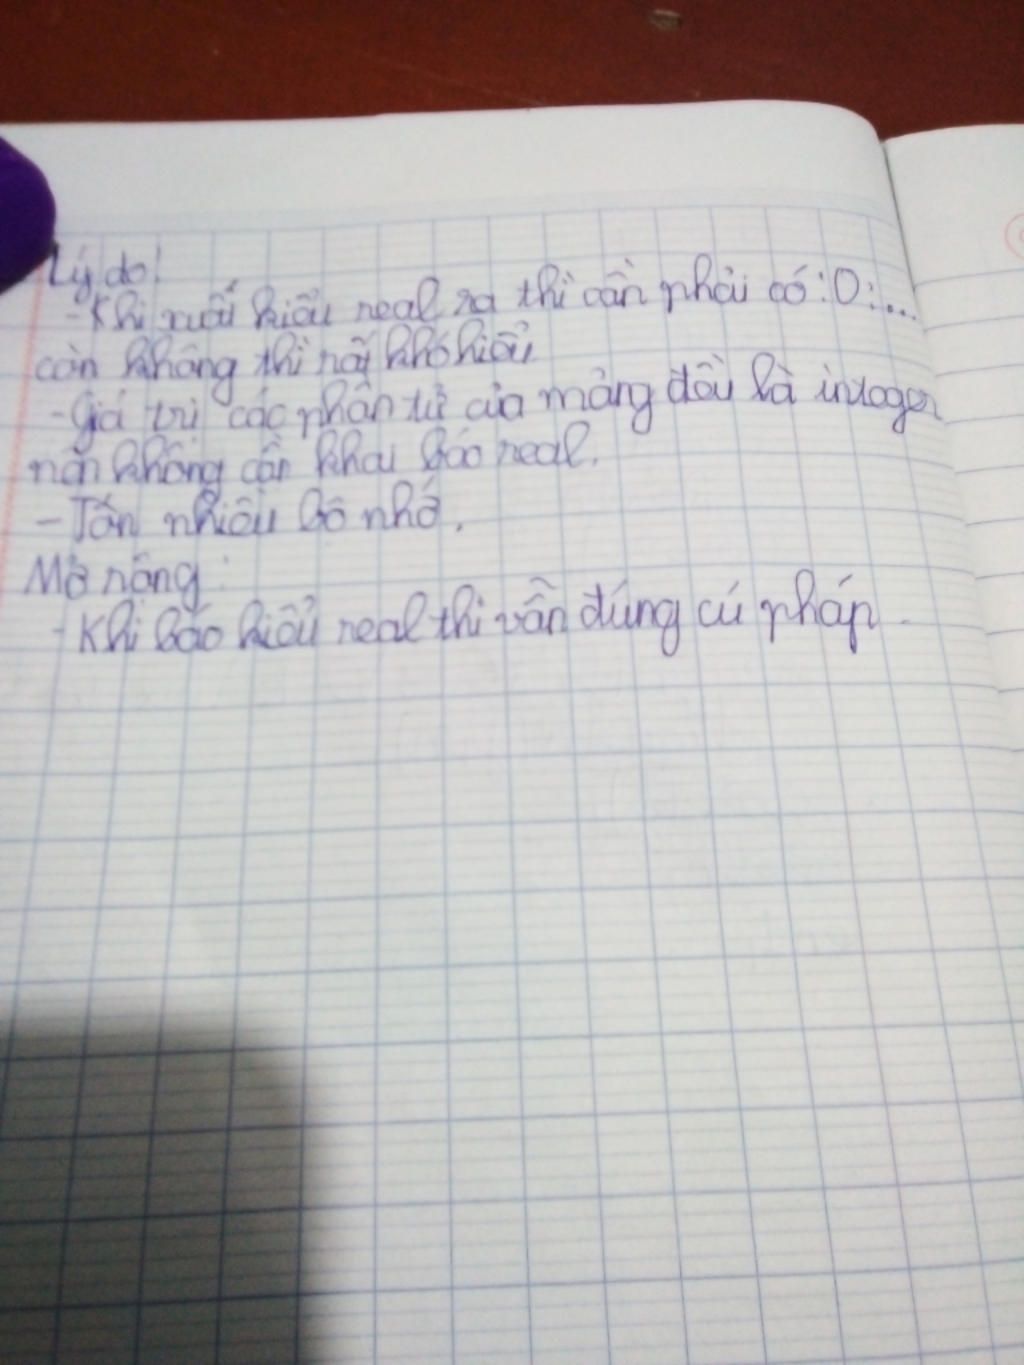 Lý do!
- Khi xuất kiểu real ra thì cần phải có :0:...
còn không thì rất khó hiểu
- Giá trị các phần tử của mảng đều là integer
nên không cần khai báo real.
- Tốn nhiều bộ nhớ.
Mở rộng:
- Khi báo kiểu real thì vẫn đúng cú pháp.